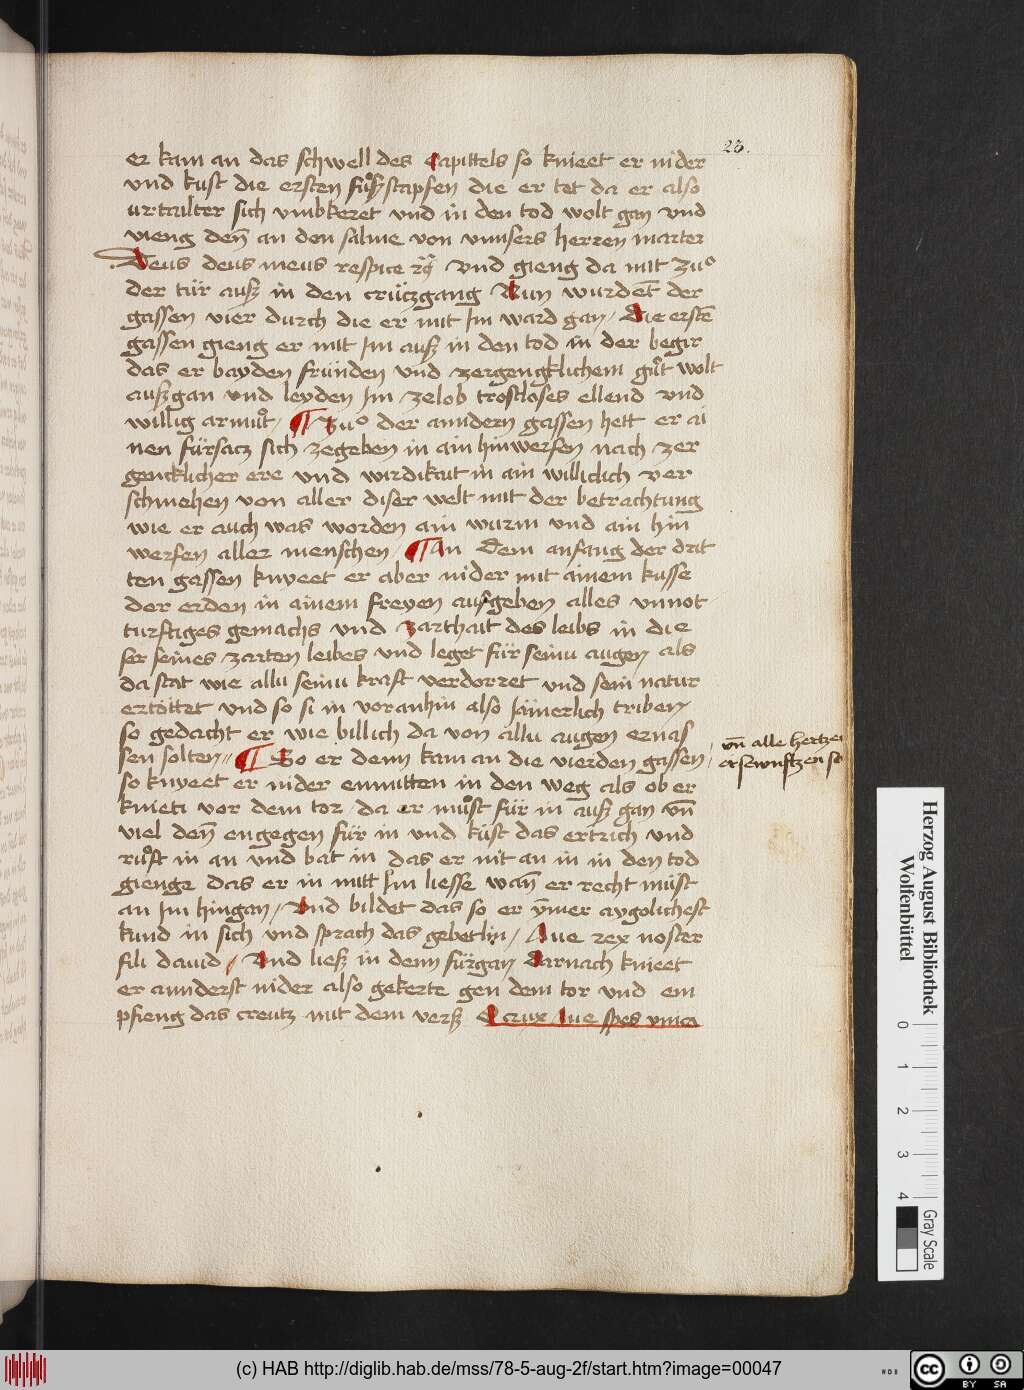 23.
er kam an das schwell des capittels so knieet er nider
vnd kust die ersten fůsstapfen die er tet da er also
urtailter sich vmbkeret vnd in den tod wolt gan vnd
vieng deñ an den salme von vnnsers herren marter
Deus deus meus respice rq̃ vnd gieng da mit zuo
der tür ausz in den crüczgang Nun wurdeñt der
gassen vier durch die er mit Im ward gan / Die erstẽ
gassen gieng er mit Im ausz in den tod in der begir
das er bayden fründen vnd zergengklichem gůt wolt
auszgan vnd leyden Im zelob trostloses ellend vnd
willig armůt / ¶ Zuo der anndern gassen hett er ai
nen fürsacz sich zegeben in ain hinwerfen nach zer
gencklicher ere vnd wirdikait in ain williclich ver
schmehen von aller diser welt mit der betrachtung
wie er auch was worden ain wurm vnd ain hin
werfen aller menschen / ¶ An Dem anfang der drit
ten gassen knyeet er aber nider mit ainem kusse
der erden in ainem freyen aufgeben alles vnnot
turftiges gemachs vnd zarthait des leibs in die
ser seines zarten leibes vnd leget für seinu augen als
da stat wie allu seinu kraft verdorret vnd sein natur
ertöttet vnd so si in voranhin also jämerlich triben
so gedacht er wie billich da von allu augen ernas
sen solten // ¶ So er denn kam an die vierden gassen /
vñ alle hertzen
ersewnftzen so
so knyeet er nider enmitten in den weg als ob er
knieti vor dem tor da er můst für in ausz gan vñ
viel deñ engegen für in vnd kust das ertrich vnd
růft in an vnd bat in das er nit an in in den tod
gienge das er in mitt Im liesse wañ er recht müst
an Im hingan / Vnd bildet das so er ÿmer aygolichest
kund in sich vnd sprach das gebetlin / Aue rex noster
fili dauid / Vnd liesz in denn fürgan Darnach knieet
er annderst nider also gekerte gen dem tor vnd em
pfieng das creutz mit dem versz O crux Aue spes vnica
Herzog August Bibliothek
Wolfenbüttel
0 1 2 3 4
Gray Scale
(c) HAB http://diglib.hab.de/mss/78-5-aug-2f/start.htm?image=00047
WDB
cc BY SA